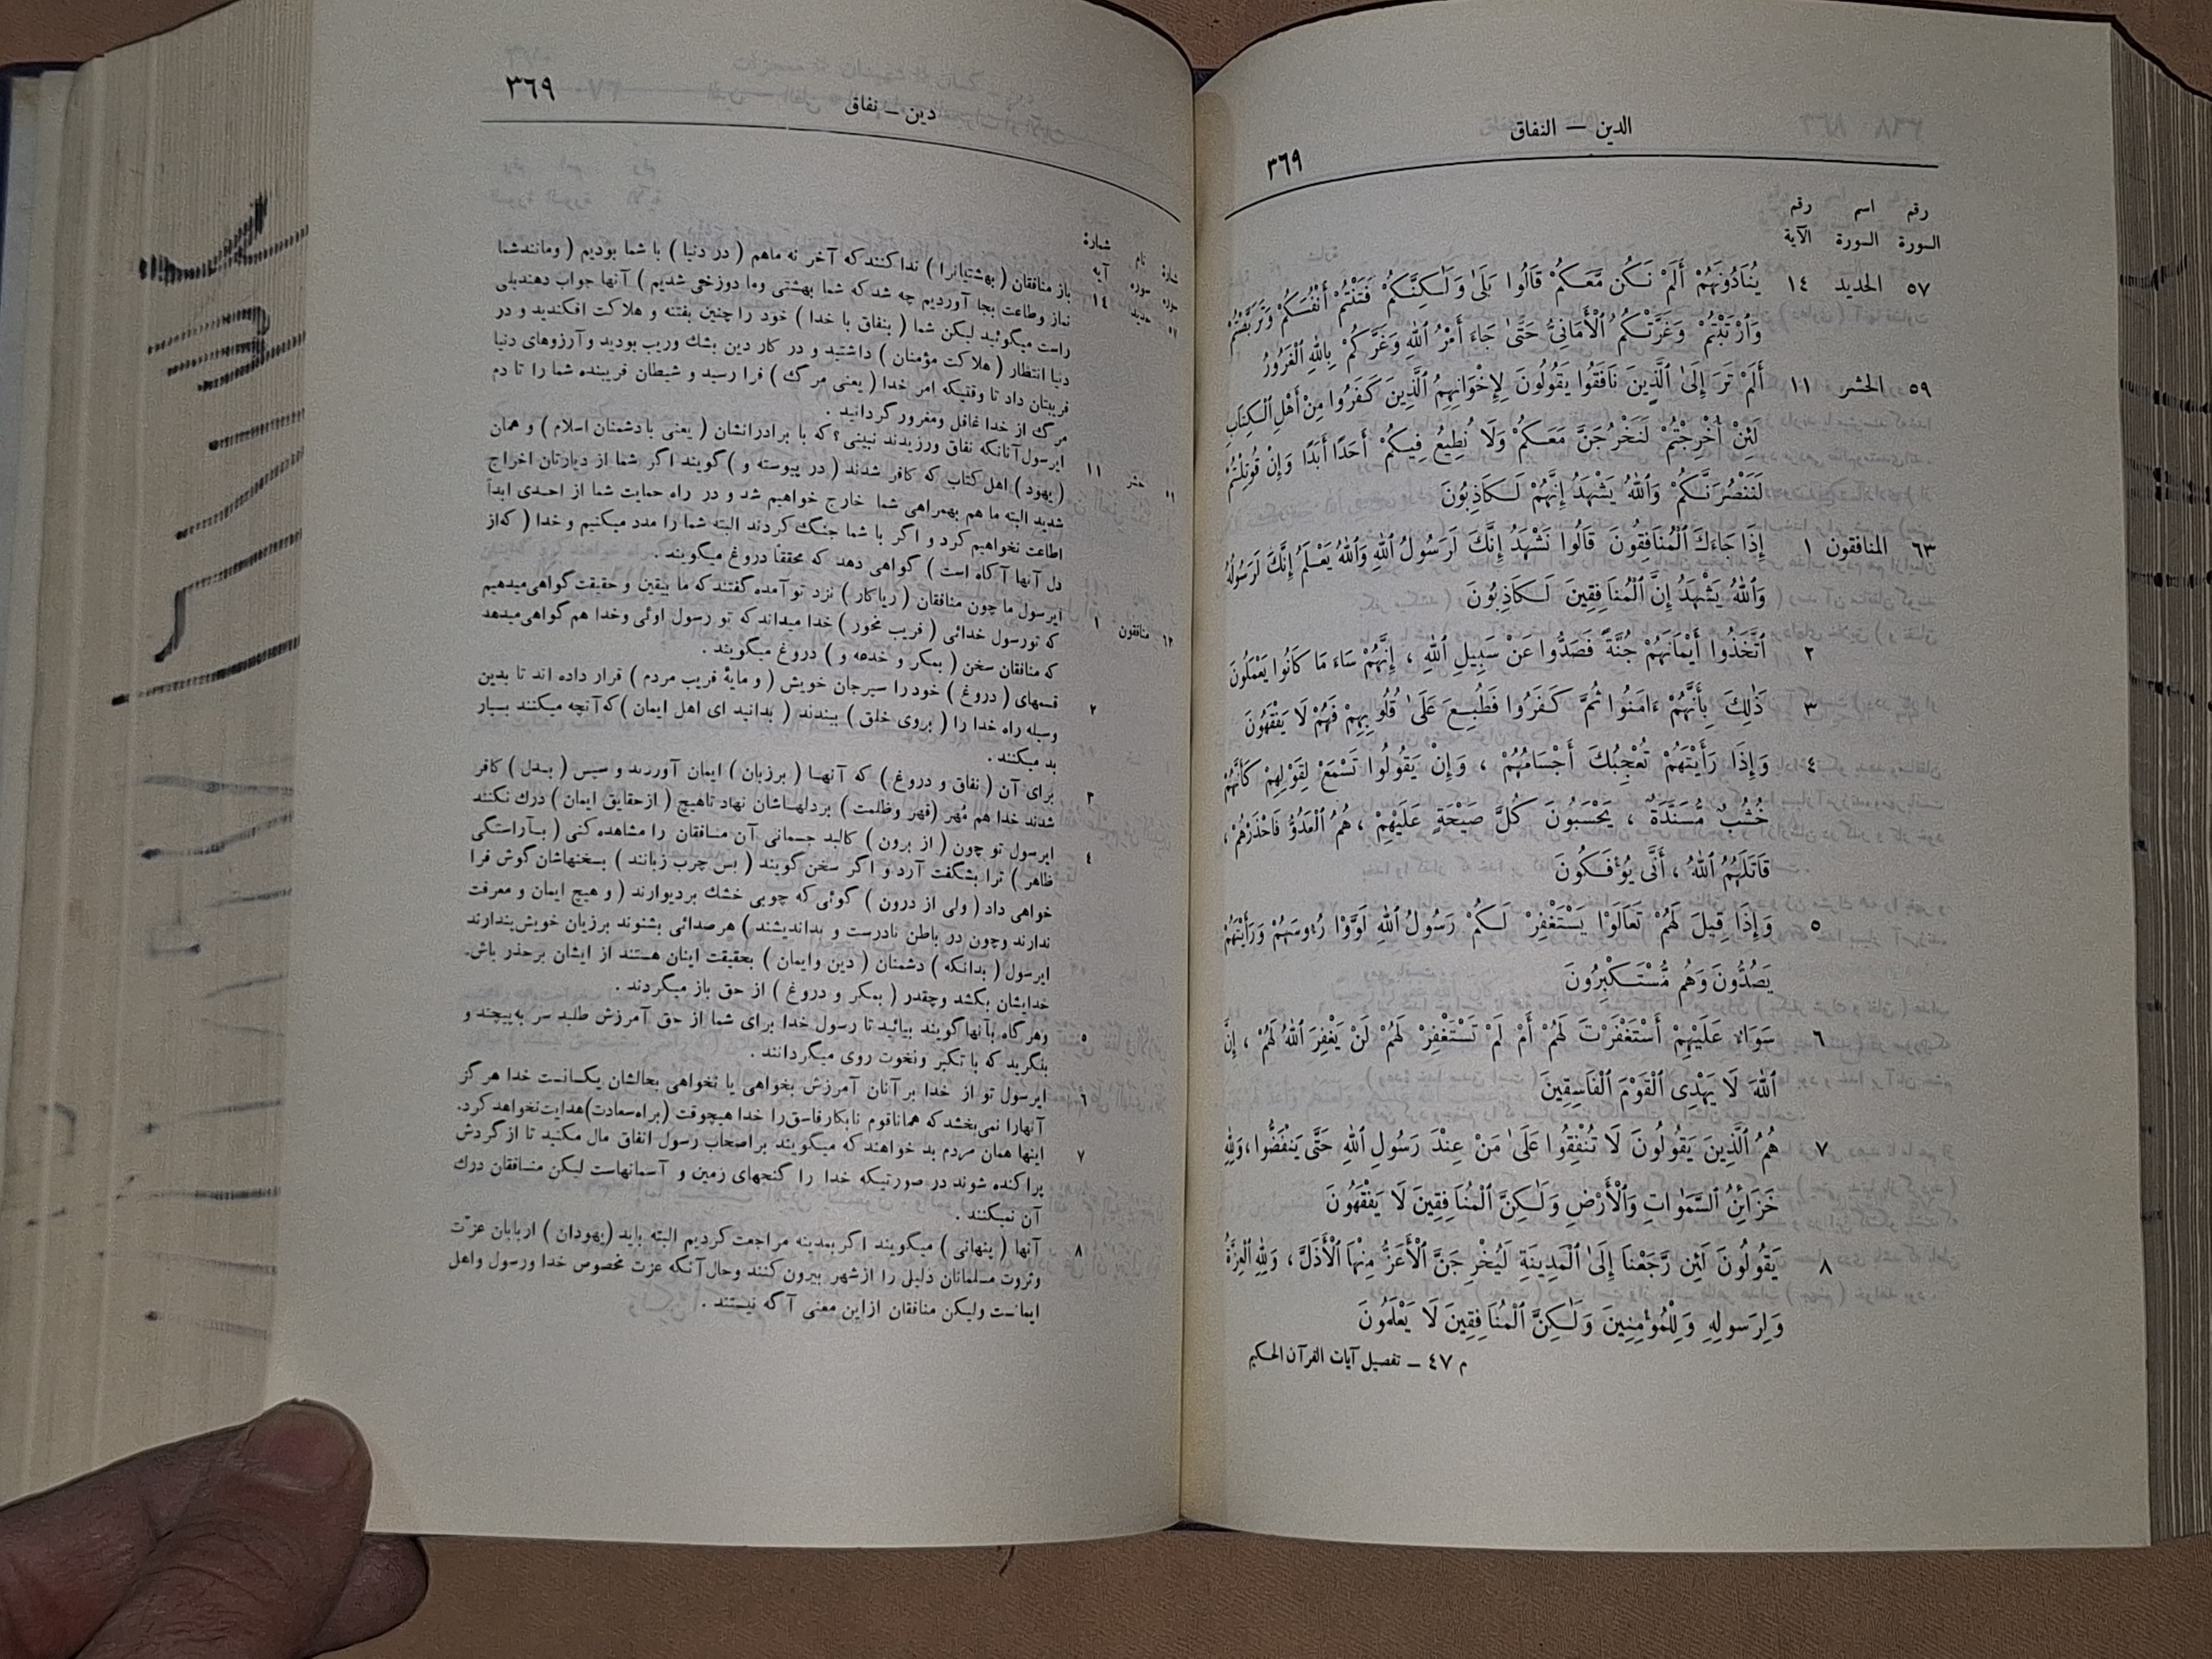 الدين — النفاق
٣٦٩
رقم اسم رقم
السورة السورة الآية
٥٧ الحديد ١٤ يُنَادُونَهُمْ أَلَمْ نَكُن مَّعَكُمْ قَالُوا بَلَىٰ وَلَٰكِنَّكُمْ فَتَنْتُمْ أَنْفُسَكُمْ وَتَرَبَّصْتُمْ
وَٱرْتَبْتُمْ وَغَرَّتْكُمُ ٱلْأَمَانِىُّ حَتَّىٰ جَاءَ أَمْرُ ٱللهِ وَغَرَّكُمْ بِاللهِ ٱلْغَرُورُ
٥٩ الحشر ١١ أَلَمْ تَرَ إِلَىٰ ٱلَّذِينَ نَافَقُوا يَقُولُونَ لِإِخْوَانِهِمُ ٱلَّذِينَ كَفَرُوا مِنْ أَهْلِ ٱلْكِتَابِ
لَئِنْ أُخْرِجْتُمْ لَنَخْرُجَنَّ مَعَكُمْ وَلَا نُطِيعُ فِيكُمْ أَحَدًا أَبَدًا وَإِنْ قُوتِلْتُمْ
لَنَنْصُرَنَّكُمْ وَٱللهُ يَشْهَدُ إِنَّهُمْ لَكَاذِبُونَ
٦٣ المنافقون ١ إِذَا جَاءَكَ ٱلْمُنَافِقُونَ قَالُوا نَشْهَدُ إِنَّكَ لَرَسُولُ ٱللهِ وَٱللهُ يَعْلَمُ إِنَّكَ لَرَسُولُهُ
وَٱللهُ يَشْهَدُ إِنَّ ٱلْمُنَافِقِينَ لَكَاذِبُونَ
٢ ٱتَّخَذُوا أَيْمَانَهُمْ جُنَّةً فَصَدُّوا عَنْ سَبِيلِ ٱللهِ ، إِنَّهُمْ سَاءَ مَا كَانُوا يَعْمَلُونَ
٣ ذَٰلِكَ بِأَنَّهُمْ ءَامَنُوا ثُمَّ كَفَرُوا فَطُبِعَ عَلَىٰ قُلُوبِهِمْ فَهُمْ لَا يَفْقَهُونَ
٤ وَإِذَا رَأَيْتَهُمْ تُعْجِبُكَ أَجْسَامُهُمْ ، وَإِنْ يَقُولُوا تَسْمَعْ لِقَوْلِهِمْ كَأَنَّهُمْ
خُشُبٌ مُّسَنَّدَةٌ ، يَحْسَبُونَ كُلَّ صَيْحَةٍ عَلَيْهِمْ ، هُمُ ٱلْعَدُوُّ فَاحْذَرْهُمْ ،
قَاتَلَهُمُ ٱللهُ ، أَنَّى يُؤْفَكُونَ
٥ وَإِذَا قِيلَ لَهُمْ تَعَالَوْا يَسْتَغْفِرْ لَكُمْ رَسُولُ ٱللهِ لَوَّوْا رُءوسَهُمْ وَرَأَيْتَهُمْ
يَصُدُّونَ وَهُم مُّسْتَكْبِرُونَ
٦ سَوَاءٌ عَلَيْهِمْ أَسْتَغْفَرْتَ لَهُمْ أَمْ لَمْ تَسْتَغْفِرْ لَهُمْ لَنْ يَغْفِرَ ٱللهُ لَهُمْ ، إِنَّ
ٱللهَ لَا يَهْدِى ٱلْقَوْمَ ٱلْفَاسِقِينَ
٧ هُمُ ٱلَّذِينَ يَقُولُونَ لَا تُنْفِقُوا عَلَىٰ مَنْ عِنْدَ رَسُولِ ٱللهِ حَتَّى يَنفَضُّوا ، وَلِلهِ
خَزَائِنُ ٱلسَّمَٰوَاتِ وَٱلْأَرْضِ وَلَٰكِنَّ ٱلْمُنَافِقِينَ لَا يَفْقَهُونَ
٨ يَقُولُونَ لَئِن رَّجَعْنَا إِلَىٰ ٱلْمَدِينَةِ لَيُخْرِجَنَّ ٱلْأَعَزُّ مِنْهَا ٱلْأَذَلَّ ، وَلِلهِ ٱلْعِزَّةُ
وَلِرَسُولِهِ وَلِلْمُؤْمِنِينَ وَلَٰكِنَّ ٱلْمُنَافِقِينَ لَا يَعْلَمُونَ
م ٤٧ — تفصيل آيات القرآن الحكيم
دین — نفاق
٣٦٩
شمارهٔ نام شمارهٔ
سوره سوره آیه
٥٧ حدید ١٤ باز منافقان ( بهشتیانرا ) ندا کنند که آخر نه ماهم ( در دنیا ) با شما بودیم ( ومانندشما
نماز وطاعت بجا آوردیم چه شد که شما بهشتی وما دوزخی شدیم ) آنها جواب دهندبلی
راست میگوئید لیکن شما ( بنفاق با خدا ) خود را چنین بفتنه و هلاکت افکندید و در
دنیا انتظار ( هلاکت مؤمنان ) داشتید و در کار دین بشك وریب بودید و آرزوهای دنیا
فریبتان داد تا وقتیکه امر خدا ( یعنی مرگ ) فرا رسید و شیطان فریبنده شما را تا دم
مرگ از خدا غافل ومغرور گردانید .
٥٩ حشر ١١ ایرسول آنانکه نفاق ورزیدند نبینی؟ که با برادرانشان ( یعنی بادشمنان اسلام ) و همان
( یهود ) اهل کتاب که کافر شدند ( در پیوسته و ) گویند اگر شما از دیارتان اخراج
شدید البته ما هم بهمراهی شما خارج خواهیم شد و در راه حمایت شما از احدی ابداً
اطاعت نخواهیم کرد و اگر با شما جنگ کردند البته شما را مدد میکنیم و خدا ( که‌از
دل آنها آگاه است ) گواهی دهد که محققاً دروغ میگویند .
٦٣ منافقون ١ ایرسول ما چون منافقان ( ریاکار ) نزد تو آمده گفتند که ما بیقین و حقیقت گواهی‌میدهیم
که تورسول خدائی ( فریب نخور ) خدا میداند که تو رسول اوئی وخدا هم گواهی‌میدهد
که منافقان سخن ( بمکر و خدعه و ) دروغ میگویند .
٢ قسمهای ( دروغ ) خود را سپرجان خویش ( و مایهٔ فریب مردم ) قرار داده اند تا بدین
وسیله راه خدا را ( بروی خلق ) ببندند ( بدانید ای اهل ایمان ) که آنچه میکنند بسیار
بد میکنند .
٣ برای آن ( نفاق و دروغ ) که آنها ( برزبان ) ایمان آوردند و سپس ( بدل ) کافر
شدند خدا هم مُهر (قهر وظلمت) بردلهاشان نهاد تاهیچ ( ازحقایق ایمان ) درك نکنند
٤ ایرسول تو چون ( از برون ) کالبد جسمانی آن منافقان را مشاهده کنی ( بآراستگی
ظاهر ) ترا بشگفت آرد و اگر سخن گویند ( بس چرب زبانند ) بسخنهاشان گوش فرا
خواهی داد ( ولی از درون ) گوئی که چوبی خشك بردیوارند ( و هیچ ایمان و معرفت
ندارند وچون در باطن نادرست و بداندیشند ) هرصدائی بشنوند برزیان خویش‌پندارند
ایرسول ( بدانکه ) دشمنان ( دین وایمان ) بحقیقت اینان هستند از ایشان برحذر باش.
خدایشان بکشد وچقدر ( بمکر و دروغ ) از حق باز میگردند .
٥ وهرگاه بآنها گویند بیائید تا رسول خدا برای شما از حق آمرزش طلبد سر بپیچند و
بنگرید که با تکبر ونخوت روی میگردانند .
٦ ایرسول تو از خدا برآنان آمرزش بخواهی یا نخواهی بحالشان یکسانست خدا هرگز
آنهارا نمی‌بخشد که همانا قوم نابکار فاسق را خدا هیچوقت (براه‌سعادت)هدایت‌نخواهد کرد.
٧ اینها همان مردم بد خواهند که میگویند براصحاب رسول انفاق مال مکنید تا از گردش
پراکنده شوند در صورتیکه خدا را گنجهای زمین و آسمانهاست لیکن منافقان درك
آن نمیکنند .
٨ آنها ( پنهانی ) میگویند اگر بمدینه مراجعت کردیم البته باید (یهودان ) اربابان عزّت
وثروت مسلمانان ذلیل را ازشهر بیرون کنند وحال‌آنکه عزت مخصوص خدا ورسول واهل
ایمانست ولیکن منافقان ازاین معنی آگه نیستند .